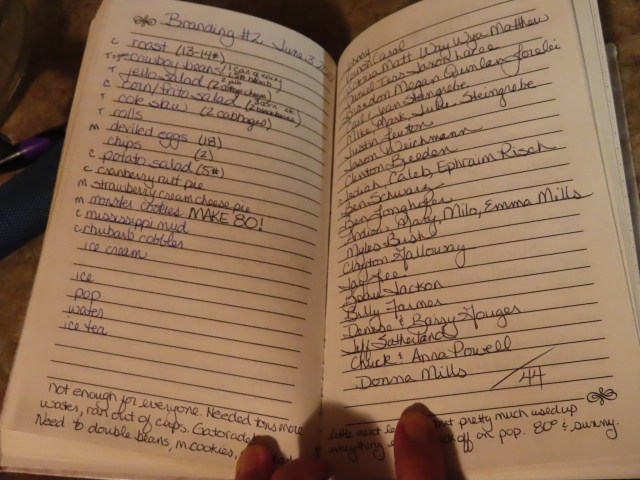 Branding #2 June 3
C roast (13-14#)
cowboy beans
jello salad
C corn/frito salad
T cole slaw (2 cabbages)
T rolls
M deviled eggs (18)
chips (2)
C potato salad (5#)
C cranberry nut pie
M strawberry cream cheese pie
M monster cookies MAKE 80!
C mississippi mud
C rhubarb cobbler
ice cream
ice
pop
water
ice tea
not enough for everyone. Needed tons more
water, ran out of cups. Gatorade
Need to double beans, m. cookies,
Carol
Matt Way Wyn Matthew
Daniel Tess Jaxon
Megan Quinlan Jorolei
Steingrebe
Mike Mark Luke Steingrebe
Justin
Jason Wichmann
Clinton Breeden
Jediah, Caleb, Ephraim Risch
Ben Schwarz
Ben Longhofer
Andie, Maty, Milo, Emma Mills
Myles Bush
Clayton Galloway
Jay Lee
Jackson
Billy Farmer
Denise & Barry Gouger
Jeff Sutherland
Chuck & Anna Powell
Donna Mills 44
but pretty much used up
everything on pop. 80° & sunny.